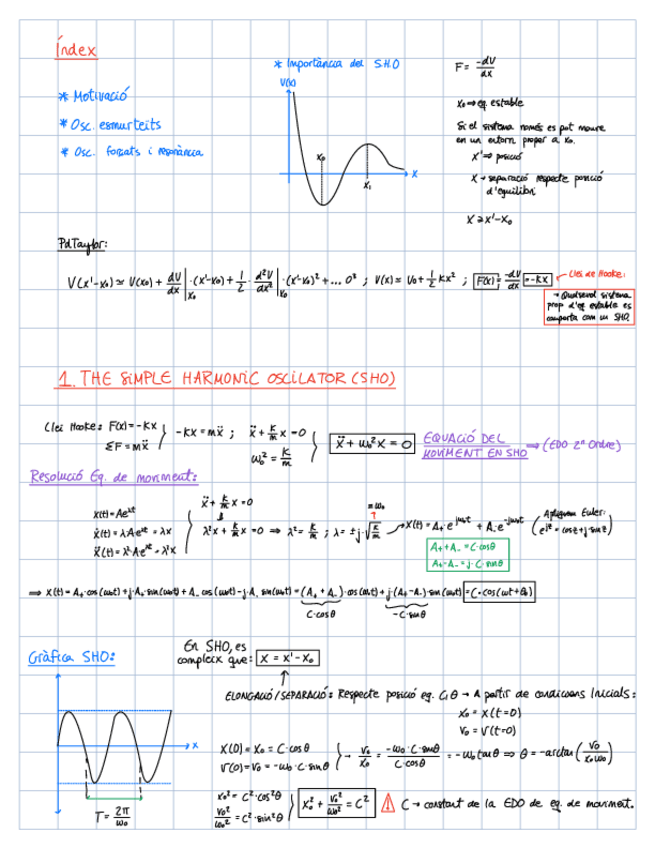 Índex
* Motivació
* Osc. esmurteïts
* Osc. forçats i resonància
* Importància del SHO
V(x)
x₀
x₁
x
F = -dV/dx
x₀ ⇒ eq. estable
Si el sistema només es pot moure
en un entorn proper a x₀.
x' ⇒ posició
x → separació respecte posició
d'equilibri
x ≡ x'-x₀
Pd Taylor:
V(x'-x₀) ≃ V(x₀) + dV/dx|x₀ · (x'-x₀) + 1/2 · d²V/dx²|x₀ · (x'-x₀)² + ... 0³ ; V(x) ≃ V₀ + 1/2 Kx² ; F(x) = -dV/dx = -Kx
Llei de Hooke:
→ Qualsevol sistema
prop d'eq estable es
comporta com un SHO.
1. THE SIMPLE HARMONIC OSCILATOR (SHO)
Llei Hooke: F(x) = -Kx
ΣF = mẍ
-Kx = mẍ ; ẍ + K/m x = 0
ω₀² = K/m
ẍ + ω₀²x = 0
EQUACIÓ DEL
MOVIMENT EN SHO
⇒ (EDO 2ⁿ Ordre)
Resolució Eq. de moviment:
x(t) = Ae^λt
ẋ(t) = λ·Ae^λt = λx
ẍ(t) = λ²·Ae^λt = λ²x
ẍ + K/m x = 0
λ²x + K/m x = 0 ⇒ λ² = K/m ; λ = ±j·√K/m
= ω₀
→ x(t) = A₊·e^jω₀t + A₋·e^-jω₀t
(Apliquem Euler:
e^jz = cosz + j·sinz)
A₊ + A₋ = C·cosθ
A₊ - A₋ = j·C·sinθ
⇒ x(t) = A₊·cos(ω₀t) + j·A₊·sin(ω₀t) + A₋ cos(ω₀t) - j·A₋ sin(ω₀t) = (A₊ + A₋)·cos(ω₀t) + j·(A₊ - A₋)·sin(ω₀t) = C·cos(ωt+θ₀)
C·cosθ
-C·sinθ
Gràfica SHO:
En SHO, es
compleix que: x = x' - x₀
ELONGACIÓ/SEPARACIÓ: Respecte posició eq. C i θ → A partir de condicions inicials:
x₀ = x(t=0)
v₀ = v(t=0)
x
T = 2π/ω₀
x(0) = x₀ = C·cosθ
v(0) = v₀ = -ω₀·C·sinθ
→ v₀/x₀ = -ω₀·C·sinθ / C·cosθ = -ω₀ tanθ ⇒ θ = -arctan(v₀/x₀ω₀)
x₀² = C²·cos²θ
v₀²/ω₀² = C²·sin²θ
x₀² + v₀²/ω₀² = C²
⚠ C → constant de la EDO de eq. de moviment.